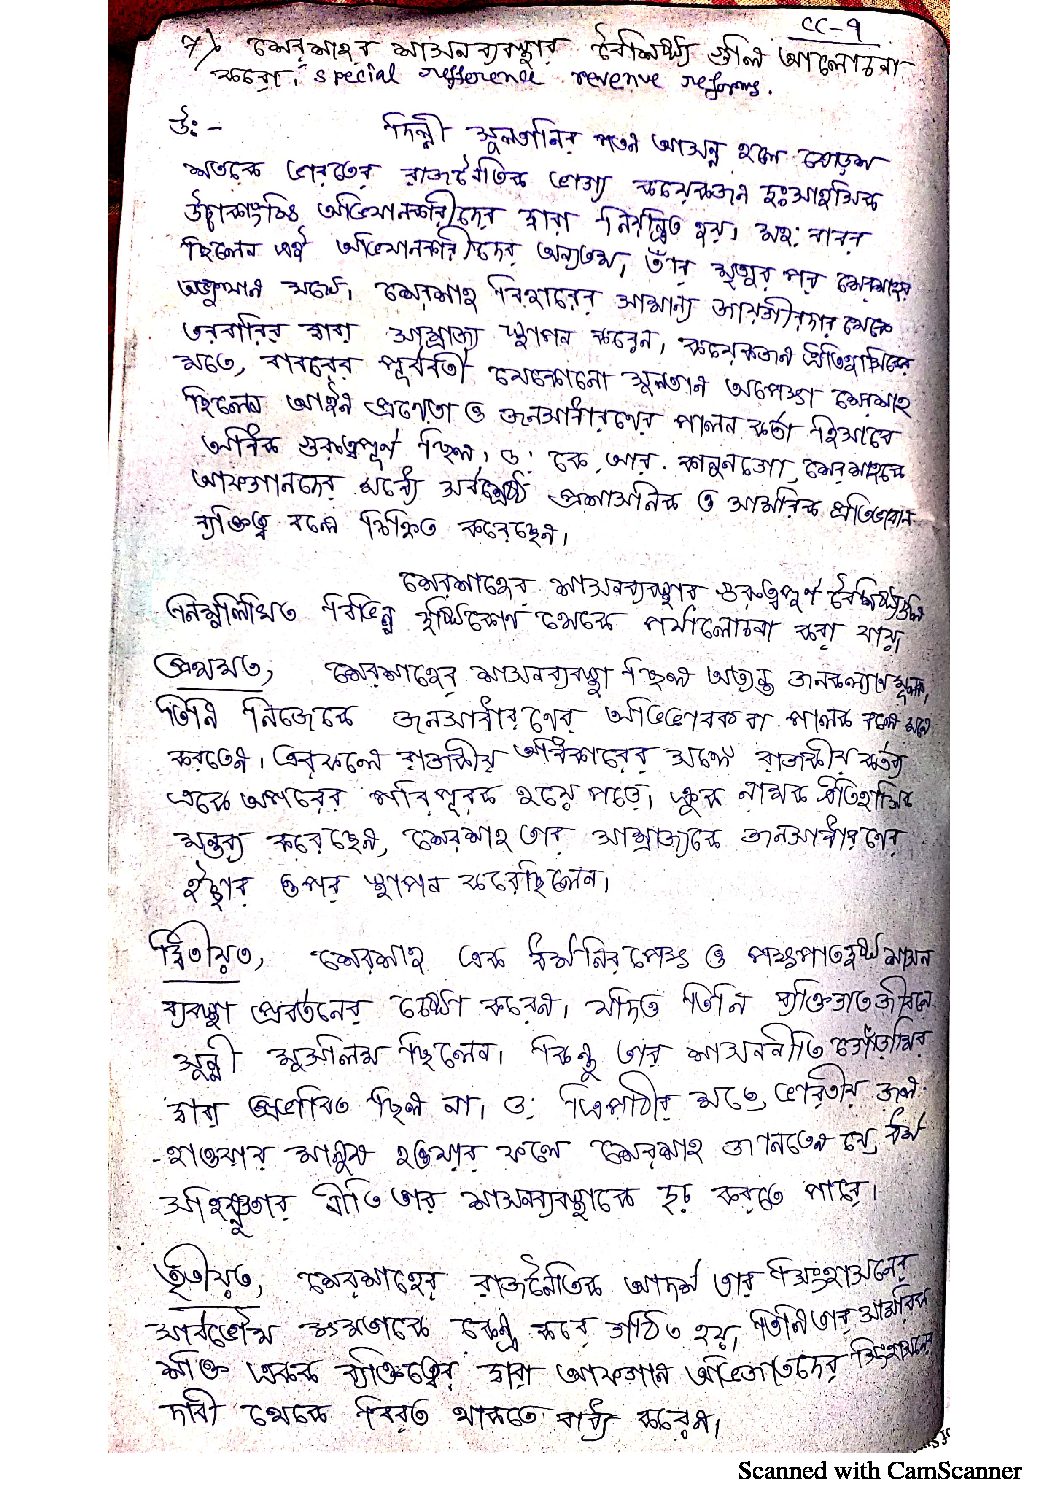 CC-9
৭) শেরশাহর শাসনব্যবস্থার বৈশিষ্ট্য গুলি আলোচনা
করো। special refference revenue reforms.
উঃ - দিল্লী সুলতানির পতন আসন্ন হলে ষোড়শ
শতকে ভারতের রাজনৈতিক ভাগ্য কয়েকজন দুঃসাহসিক
উচ্চাকাংখি অভিযানকারীদের দ্বারা নিয়ন্ত্রিত হয়। মহঃ বাবর
ছিলেন এই অভিযানকারীদের অন্যতম, তাঁর মৃত্যুর পর শেরশাহর
অভ্যুত্থান ঘটে। শেরশাহ বিহারের সামান্য জায়গীরদার থেকে
তরবারির দ্বারা সাম্রাজ্য স্থাপন করেন, কয়েকজন ঐতিহাসিকের
মতে, বাবরের পূর্ববর্তী যেকোনো সুলতান অপেক্ষা শেরশাহ
ছিলেন আইন প্রণেতা ও জনসাধারণের পালন কর্তা হিসাবে
অধিক গুরুত্বপূর্ণ ছিল। ড: কে. আর. কানুনগো, শেরশাহকে
আফগানদের মধ্যে সর্বশ্রেষ্ঠ প্রশাসনিক ও সামরিক প্রতিভাবান
ব্যক্তিত্ব বলে চিহ্নিত করেছেন।
শেরশাহের শাসনব্যবস্থার গুরুত্বপূর্ণ বৈশিষ্ট্যগুলি
নিম্নলিখিত বিভিন্ন দৃষ্টিকোণ থেকে পর্যালোচনা করা যায়
প্রথমত, শেরশাহের শাসনব্যবস্থা ছিল অত্যন্ত জনকল্যাণমূলক,
তিনি নিজেকে জনসাধারণের অভিভাবক বা পালক বলে মনে
করতেন। এরফলে রাজকীয় অধিকারের সঙ্গে রাজকীয় কর্তব্য
একে অপরের পরিপূরক হয়ে পড়ে। ক্রুক নামক ঐতিহাসিক
মন্তব্য করেছেন, শেরশাহ তার সাম্রাজ্যকে জনসাধারণের
ইচ্ছার ওপর স্থাপন করেছিলেন।
দ্বিতীয়ত, শেরশাহ এক ধর্মনিরপেক্ষ ও পক্ষপাতহীন শাসন
ব্যবস্থা প্রবর্তনের চেষ্টা করেন। যদিও তিনি ব্যক্তিগত জীবনে
সুন্নী মুসলিম ছিলেন। কিন্তু তার শাসননীতি গোঁড়ামির
দ্বারা প্রভাবিত ছিল না। ড: ত্রিপাঠীর মতে, ভারতীয় জল
-হাওয়ার মানুষ হওয়ার ফলে শেরশাহ জানতেন যে, ধর্ম
সহিষ্ণুতার নীতি তার শাসনব্যবস্থাকে দৃঢ় করতে পারে।
তৃতীয়ত, শেরশাহের রাজনৈতিক আদর্শ তার সিংহাসনের
সার্বভৌম ক্ষমতাকে কেন্দ্র করে গঠিত হয়, তিনি তার সামরিক
শক্তি এবং ব্যক্তিত্বের দ্বারা আফগান অভিজাতদের সিংহাসনের
দাবী থেকে বিরত থাকতে বাধ্য করেন।
Scanned with CamScanner